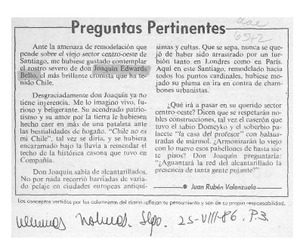 Preguntas Pertinentes
Ante la amenaza de remodelación que
pende sobre el viejo sector centro-oeste de
Santiago, me hubiese gustado contemplar
el rostro severo de don Joaquín Edwards
Bello, el más brillante cronista que ha te-
nido Chile.
Desgraciadamente don Joaquín ya no
tiene injerencia. Me lo imagino vivo, fu-
rioso y beligerante. Su acendrado patrio-
tismo y su amor por la tierra le hubiesen
hecho caer en más de una pataleta ante
las bestialidades de hogaño. "Chile no es
mi Chile", tal vez se diría, y se hubiera
encaramado bajo la lluvia a remendar el
techo de la histórica casona que tuvo en
Compañía.
Don Joaquín sabía de alcantarillados.
No por nada recorrió barriadas de varia-
do pelaje en ciudades europeas antiquí-
simas y cultas. Que se sepa, nunca se que-
jó de haber sido arrastrado por un
turión tanto en Londres como en París.
Aquí en este Santiago, remodelado hacia
todos los puntos cardinales, hubiese mo-
jado su pluma en ira en contra de cham-
bones urbanistas.
¿Qué irá a pasar en su querido sector
centro-oeste? Dicen que se respetarán no-
bles construcciones, tal vez el caserón que
tuvo el sabio Domeyko y el soberbio pa-
lacete "la casa del profesor" con balaus-
tradas de mármol. ¿Armonizará mucho
con lo nuevo esos pabellones de hasta sie-
te pisos? Don Joaquín preguntaría:
"¿Aguantará la red del alcantarillado la
presencia de tanta gente pujante?".
● Juan Rubén Valenzuela
Los conceptos vertidos por los columnistas del diario reflejan su pensamiento y son de su propia responsabilidad.
25-VIII-86. P.3